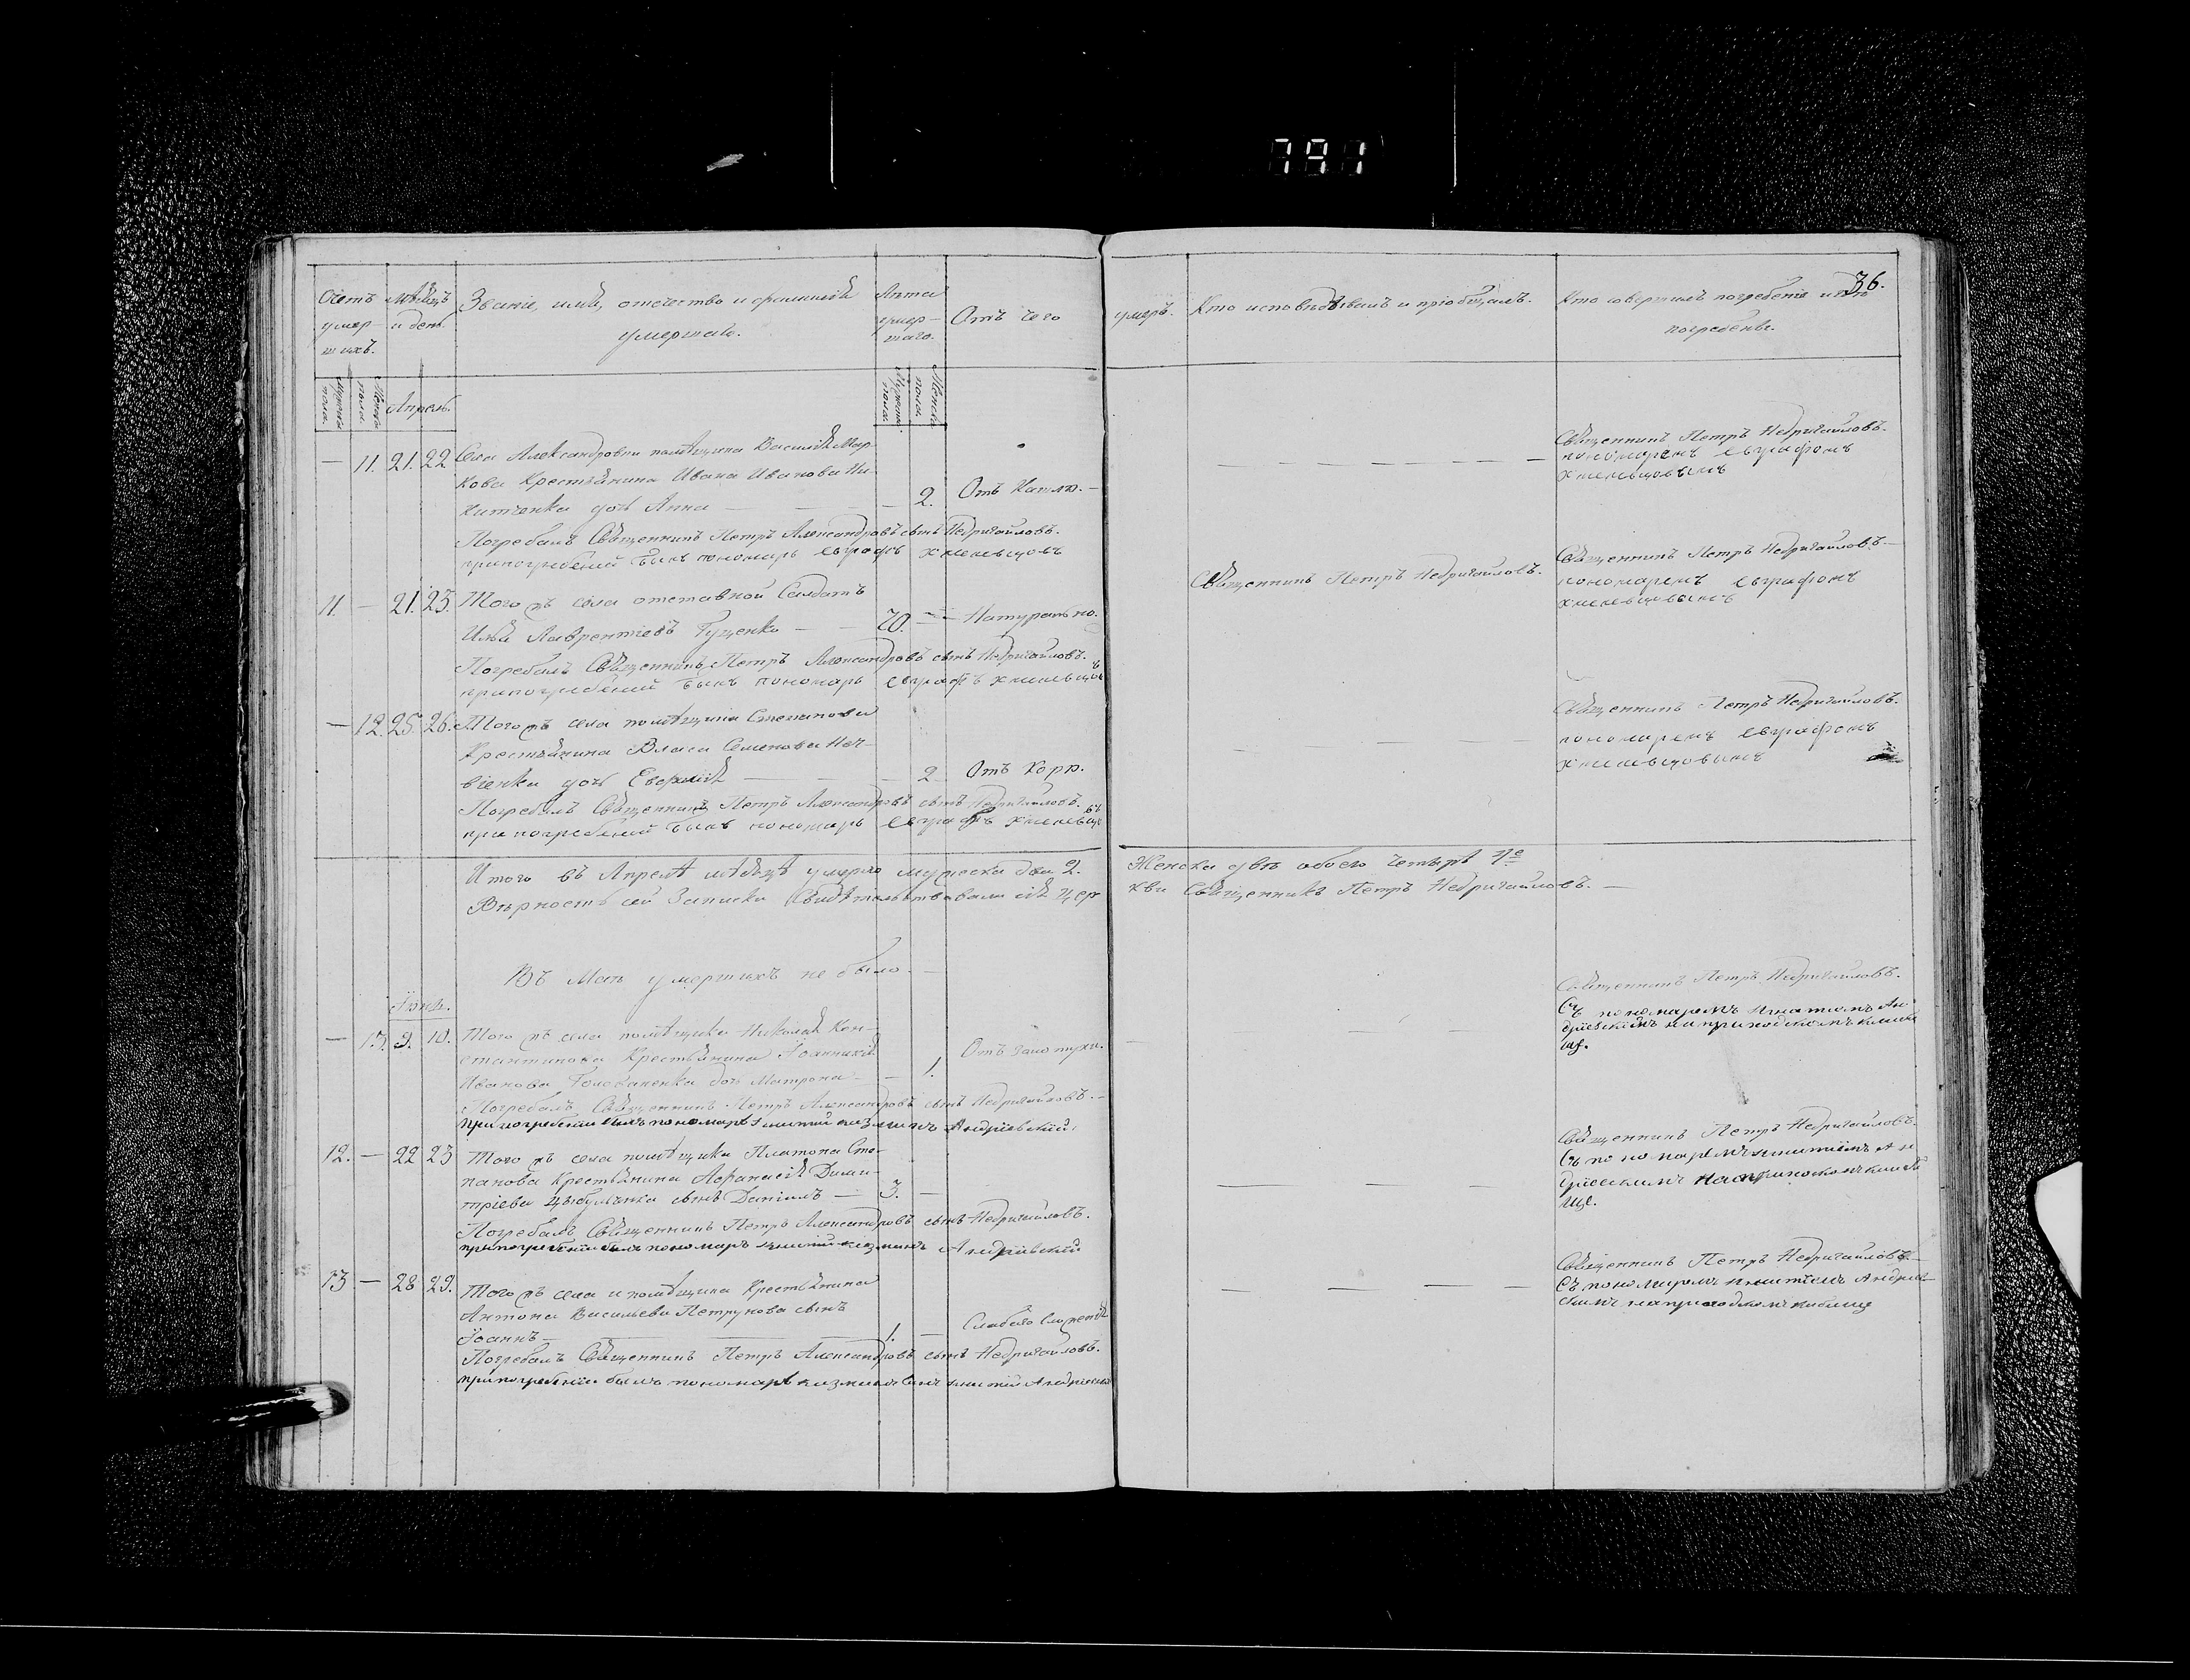 791
36.
Счетъ умер-шихъ.
Мѣсяцъ и день.
Званіе, имя, отечество и фамилія
умершаго.
Лѣта
умер-
шаго.
Отъ чего
умеръ.
Кто исповѣдывалъ и пріобщалъ.
Кто совершилъ погребеніе и гдѣ
погребены.
Мужеска пола.
Женска пола.
Апрель.
Мужеска пола.
Женска пола.
— 11. 21. 22 Села Александровки помѣщика Василія Мар-
кова Крестьянина Ивана Иванова Ни-
китченка дочь Анна — — — 2. Отъ Кашлю. —
Погребалъ Священникъ Петръ Александровъ сынъ Недригайловъ.
при погребеніи былъ пономарь Евграфъ Хмелевцовъ
Священникъ Петръ Недригайловъ.
пономаремъ Евграфомъ
Хмелевцовымъ
11. — 21. 23. Того жъ села отставной Салдатъ
Илья Лаврентіевъ Гуценко — — 70. — Натурально.
Погребалъ Священникъ Петръ Александровъ сынъ Недригайловъ.
при погребеніи былъ пономарь Евграфъ Хмелевцовъ
Священникъ Петръ Недригайловъ.
Священникъ Петръ Недригайловъ. —
пономаремъ Евграфомъ
Хмелевцовымъ
— 12. 25. 26. Того жъ села помѣщика Степанова
Крестьянина Власа Семенова
дочь — — — 2 Отъ Кори.
Погребалъ Священникъ Петръ Александровъ сынъ Недригайловъ.
при погребеніи былъ пономарь Евграфъ Хмелевцовъ
Священникъ Петръ Недригайловъ.
пономаремъ Евграфомъ
Хмелевцовымъ
Итого въ Апрелѣ мѣсяцѣ умерло мужеска два 2. Женска двѣ обоего четыре
Вѣрность сей Записки Свидѣтельствовали сія Цер кви Священникъ Петръ Недригайловъ. —
Въ Маѣ умершихъ не было. —
Іюнь.
— 13. 9. 10. Того жъ села помѣщика Николая Кон-
стантинова Крестьянина Іоанникія
Иванова дочь Матрона — — 1. Отъ
Погребалъ Священникъ Петръ Александровъ сынъ Недригайловъ. —
при погребеніи былъ пономарь Андріевскій
Священникъ Петръ Недригайловъ.
Съ пономаремъ Ан
дріевскимъ на приходскомъ кладби
ще.
12. — 22 23 Того жъ села помѣщика Платона Сте-
панова Крестьянина Афанасія Дими-
тріева сынъ Даніилъ — 3. —
Погребалъ Священникъ Петръ Александровъ сынъ Недригайловъ.
при погребеніи былъ пономарь Андріевскій
Священникъ Петръ Недригайловъ.
Съ пономаремъ Ан
дріевскимъ
ще.
13 — 28 29. Того жъ села и помѣщика Крестьянина
Антона Васильева Петрунова сынъ
Іоаннъ — 1. — Слабаго Сложенія
Погребалъ Священникъ Петръ Александровъ сынъ Недригайловъ.
при погребеніи былъ пономарь Андріевскій
Священникъ Петръ Недригайловъ.
Съ пономаремъ Андріев
скимъ на приходскомъ